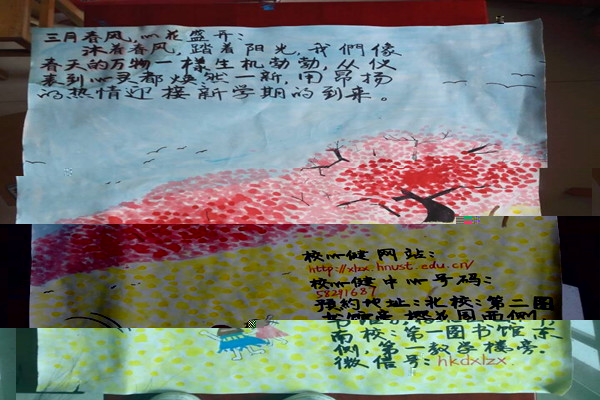 三月春风，心花盛开：
沐着春风，踏着阳光，我們像
春天的万物一樣生机勃勃，从仪
表到心灵都焕然一新，用昂扬
的热情迎接新学期的到来。
校心健网站：
http://xlzx.hnust.edu.cn/
校心健中心号码：
58291687
预约地址：北校：第二图
南校：第一图书馆东
侧，第一教学楼旁。
微信号：hkdxlzx.